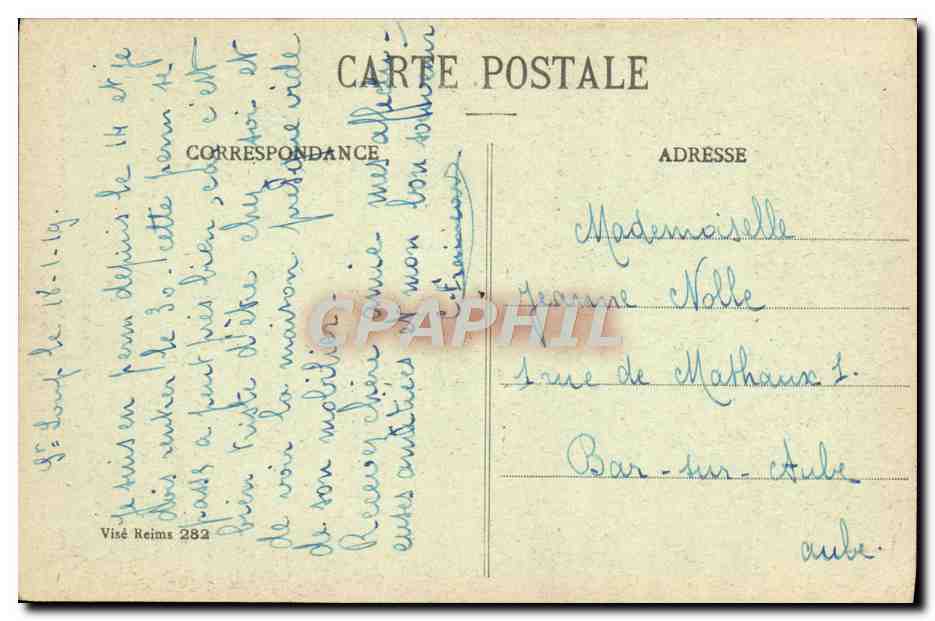 CARTE POSTALE
CORRESPONDANCE
ADRESSE
le 18-1-19.
Je suis en perm depuis le 14 et je
dois rentrer le 30. cette perm se
pass a peut près bien, car c'est
bien triste d'être chez soi et
de voir la maison presque vide
de son mobilier.
Recevez chère amie mes affectu-
euses amitiées et mon bon souvenir
Mademoiselle
Jeanne Nolle
1 rue de Mathaux 1.
Bar-sur-Aube
aube.
Visé Reims 282
CPAPHIL